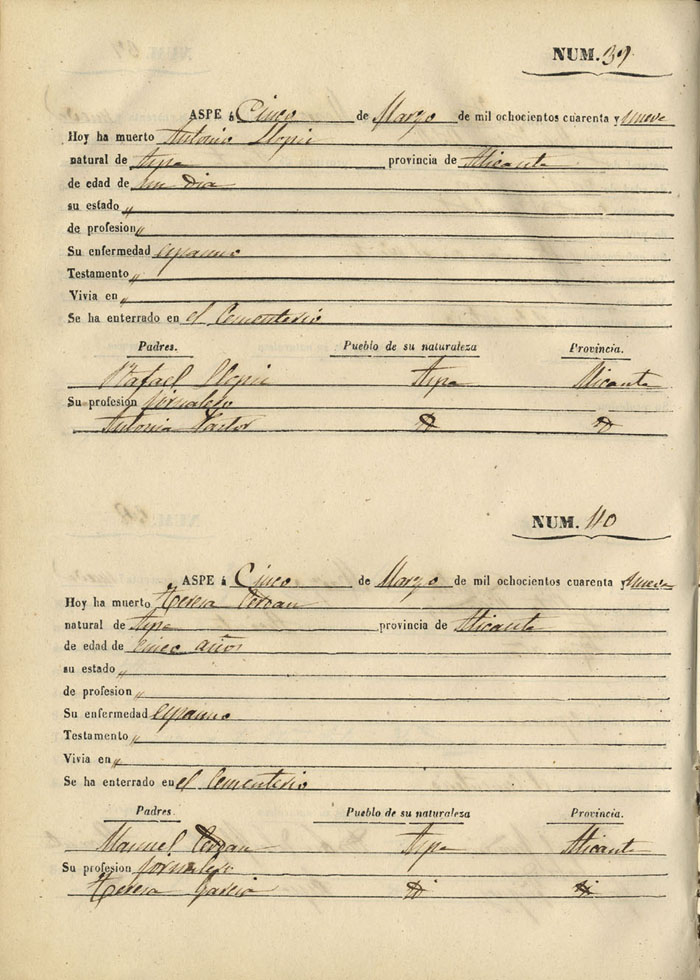 NUM. 39
ASPE á Cinco de Marzo de mil ochocientos cuarenta y nueve
Hoy ha muerto Antonio Llopis
natural de Aspe provincia de Alicante
de edad de un dia
su estado "
de profesion "
Su enfermedad espasmo
Testamento "
Vivia en "
Se ha enterrado en el Cementerio
Padres. Pueblo de su naturaleza Provincia.
Rafael Llopis Aspe Alicante
Su profesión Jornalero
Antonia Pastor
NUM. 40
ASPE á Cinco de Marzo de mil ochocientos cuarenta y nueve
Hoy ha muerto Teresa Cerdan
natural de Aspe provincia de Alicante
de edad de cinco años
su estado "
de profesion "
Su enfermedad espasmo
Testamento "
Vivia en "
Se ha enterrado en el Cementerio
Padres. Pueblo de su naturaleza Provincia.
Manuel Cerdan Aspe Alicante
Su profesion Jornalero
Teresa Garcia